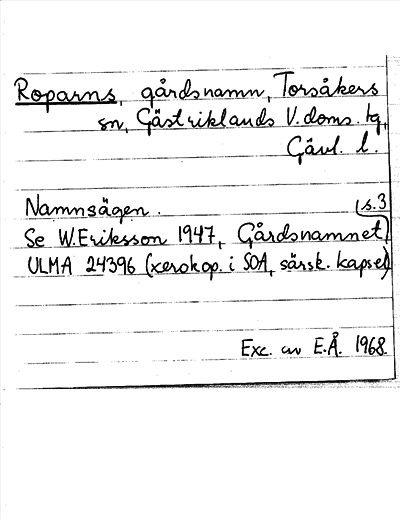 Roparns, gårdsnamn, Torsåkers
sn, Gästriklands V. doms. tg,
Gävl. l.
Namnsägen.
Se W. Eriksson 1947, Gårdsnamnet, s.3
ULMA 24396 (xerokop. i SOA, särsk. kapsel)
Exc. av E.Å. 1968.